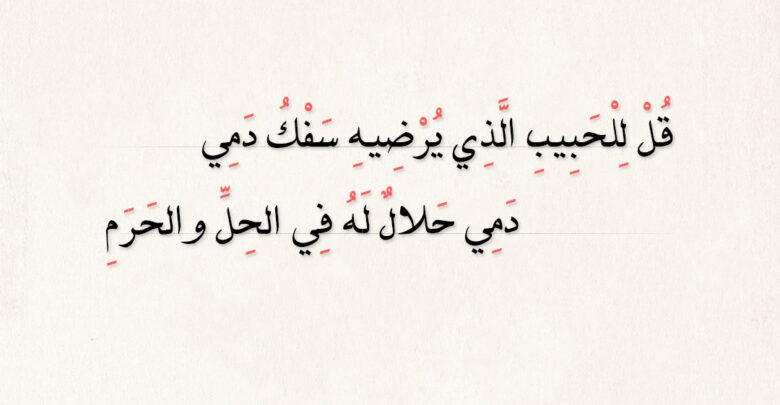 قُلْ لِلْحَبِيبِ الَّذِي يُرْضِيهِ سَفْكُ دَمِي
دَمِي حَلالٌ لَهُ فِي الحِلِّ والحَرَمِ